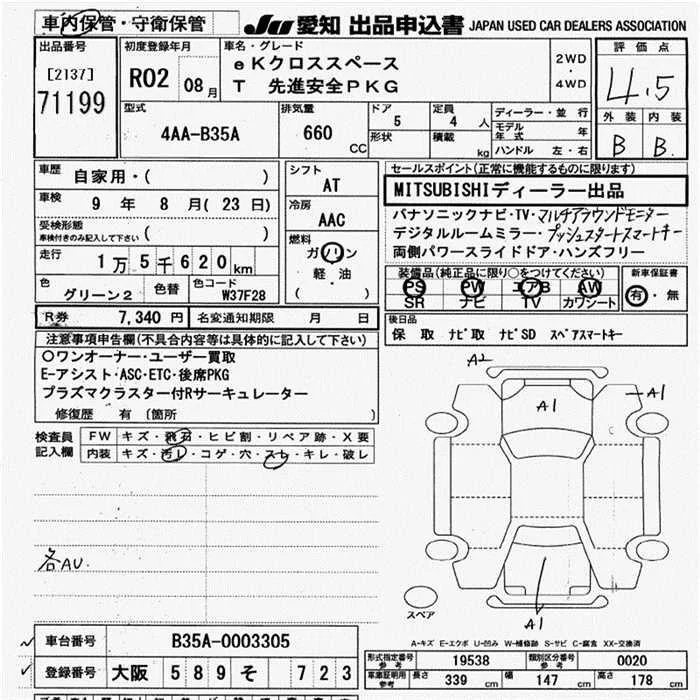 車内保管・守衛保管
JU 愛知 出品申込書 JAPAN USED CAR DEALERS ASSOCIATION
出品番号 初度登録年月 車名・グレード 評価点
[2137] R02 08月 eKクロススペース 2WD
71199 T 先進安全PKG ・ 4WD 4.5
型式 排気量 ドア 定員 ディーラー・並行 外装 内装
4AA-B35A 660 CC 5 4 人 モデル年式 年 B B
形状 積載 kg ハンドル 左・右
車歴 自家用・( ) シフト AT
セールスポイント(正常に機能するものに限ります)
車検 9 年 8 月( 23 日) 冷房 AAC
MITSUBISHIディーラー出品
受検形態 車検付きのみ記入して下さい ( ) 燃料 ガソリン 軽・油 ( )
パナソニックナビ・TV・マルチアラウンドモニター
デジタルルームミラー・プッシュスタートスマートキー
両側パワースライドドア・ハンズフリー
走行 1万5千620km
装備品(純正品に限り○をつけてください) 新車保証書
色 グリーン2 色替 色コード W37F28
PS PW エアB AW 有・無
SR ナビ TV カワシート
R券 7,340円 名変通知期限 月 日
後日品
保 取 ナビ取 ナビSD スペアスマートキー
注意事項申告欄(不具合内容等は具体的に記入して下さい)
○ワンオーナー・ユーザー買取
E-アシスト・ASC・ETC・後席PKG
プラズマクラスター付Rサーキュレーター
修復歴 有 〔箇所 )
検査員記入欄 FW キズ・飛石・ヒビ割・リペア跡・X要
内装 キズ・汚レ・コゲ・穴・スレ・キレ・破レ
各AU.
A2
A1
A1
A1
スペア
A-キズ E-エクボ U-凹み W-補修跡 S-サビ C-腐食 XX-交換済
車台番号 B35A-0003305
登録番号 大阪 589 そ 723
形式指定番号 参考 19538 類別区分番号 参考 0020
車庫証明用 参考 長さ 339 cm 幅 147 cm 高さ 178 cm